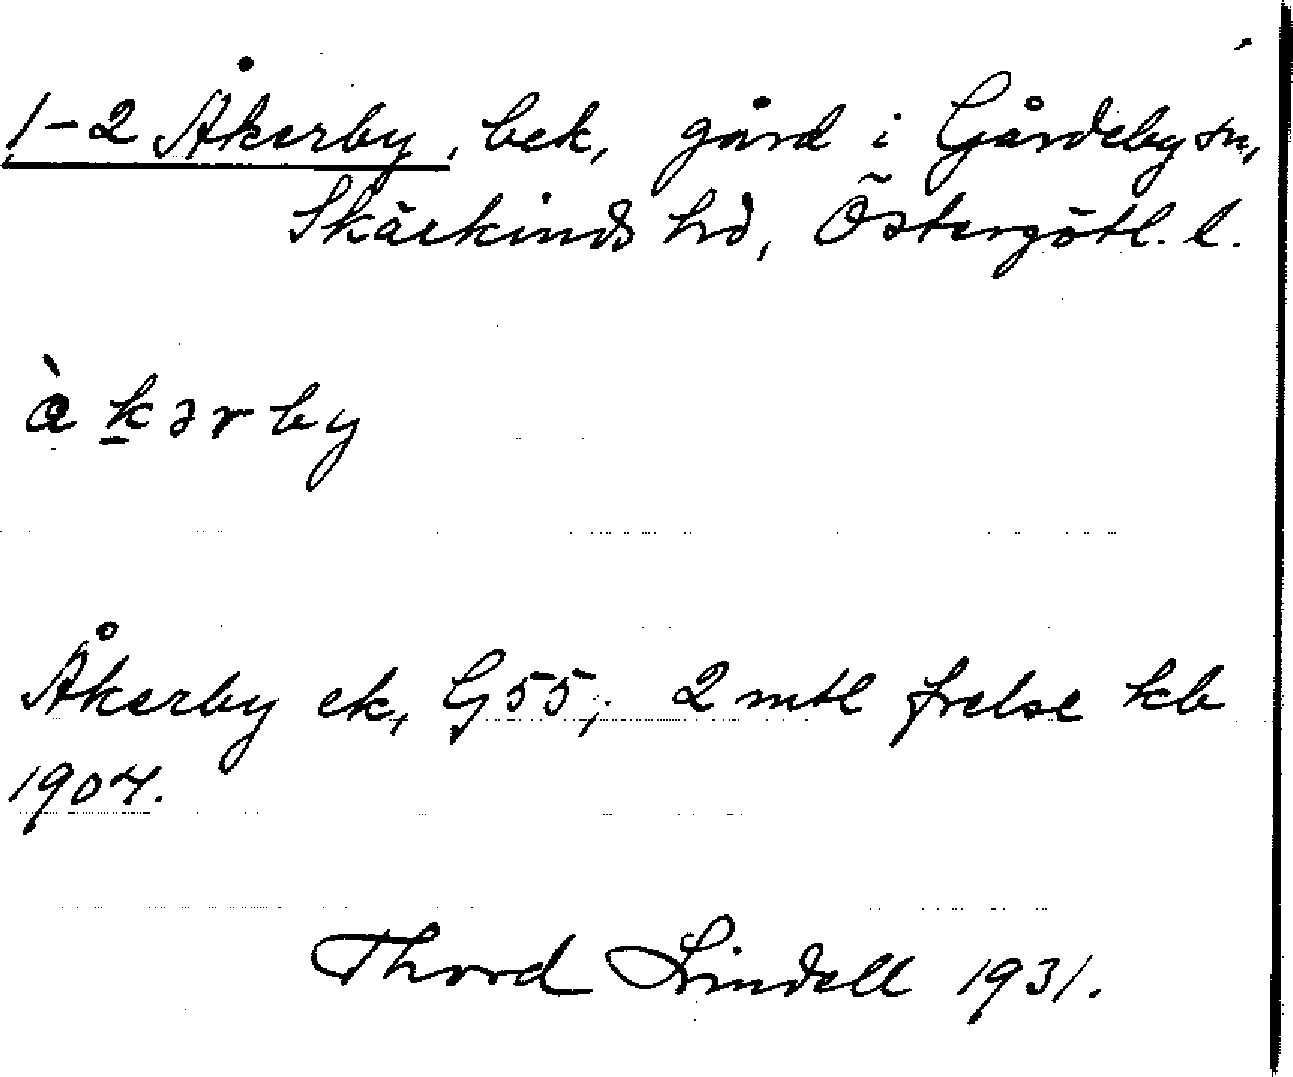 1-2 Åkerby, bek, gård i Gårdeby sn,
Skärkinds hd, Östergötl. l.
å̀ kərby
Åkerby ek, G55; 2 mtl frelse kb
1904.
Thord Lindell 1931.